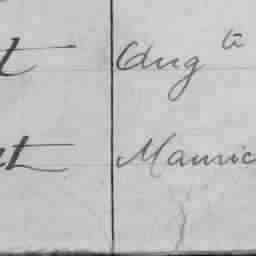 t Aug ta
t Mauric